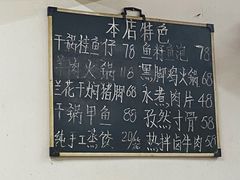 本店特色
干锅桂鱼仔 78 鱼籽鱼泡 78
羊肉火锅 118 黑脚鸡火锅 68
兰花干焖猪脚 68 水煮肉片 48
干锅甲鱼 88 孜然寸骨 58
纯手工蒸饺 20/ 热拌卤牛肉 58